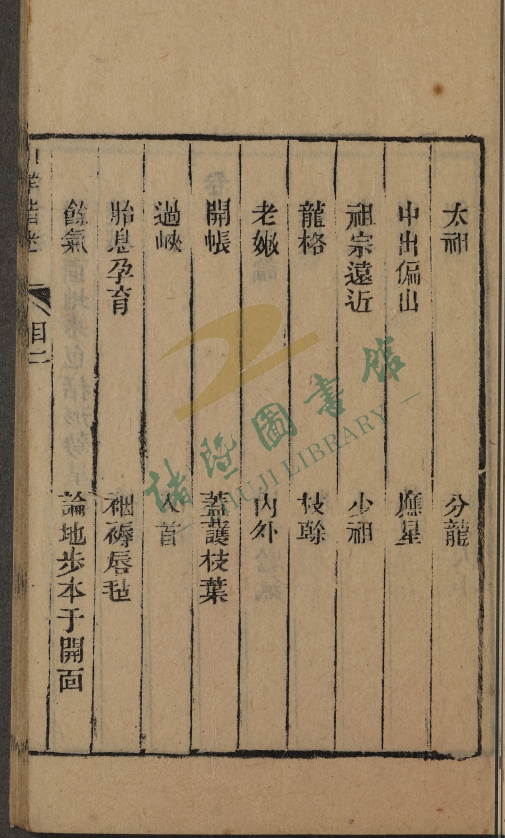 太祖 分龍
中出偏出 應星
祖宗遠近 少祖
龍格 枝䏁
老嫩 內外
開帳 蓋護枝葉
過峽 入首
胎息孕育 裀褥唇毡
餘氣 論地步本于開面
目二
諸暨圖書館
ZHUJI LIBRARY